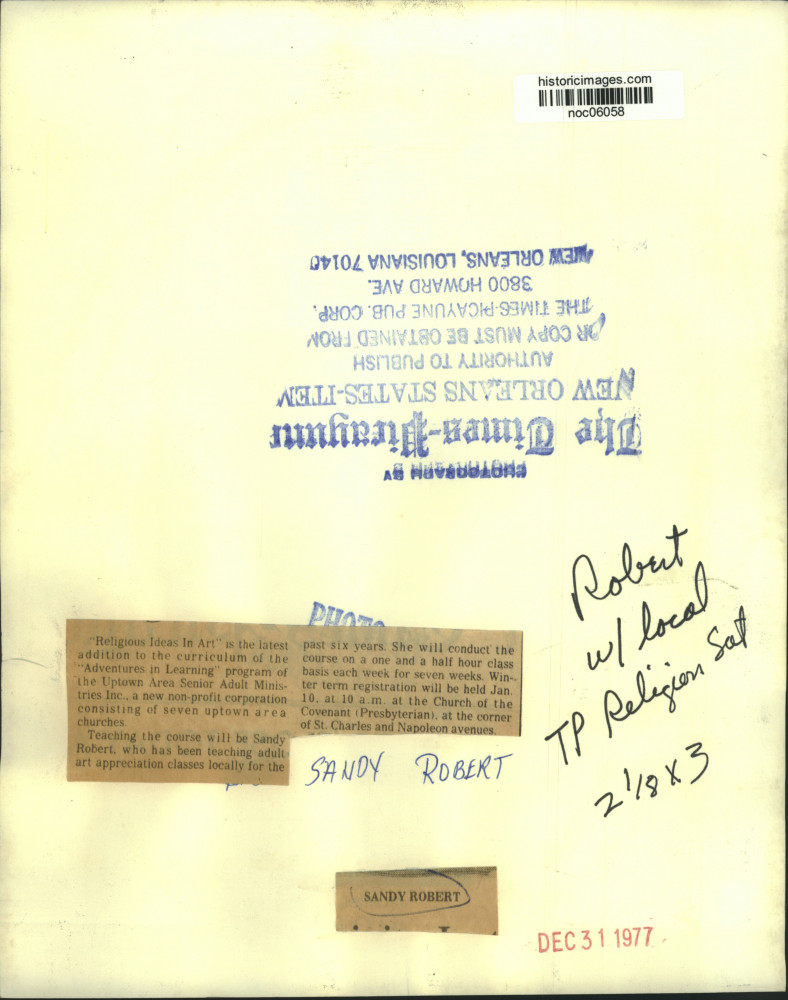 historicimages.com
noc06058
NEW ORLEANS, LOUISIANA 70140
3800 HOWARD AVE.
THE TIMES-PICAYUNE PUB. CORP.
OR COPY MUST BE OBTAINED FROM
AUTHORITY TO PUBLISH
NEW ORLEANS STATES-ITEM
The Times-Picayune
PHOTOGRAPH BY
Robert
w/ local
TP Religion Sat
2 1/8 X 3
PHOTO
"Religious Ideas In Art" is the latest
addition to the curriculum of the
"Adventures in Learning" program of
the Uptown Area Senior Adult Minis-
tries Inc., a new non-profit corporation
consisting of seven uptown area
churches.
Teaching the course will be Sandy
Robert, who has been teaching adult
art appreciation classes locally for the
past six years. She will conduct the
course on a one and a half hour class
basis each week for seven weeks. Win-
ter term registration will be held Jan.
10, at 10 a.m. at the Church of the
Covenant (Presbyterian), at the corner
of St. Charles and Napoleon avenues.
SANDY ROBERT
SANDY ROBERT
DEC 31 1977